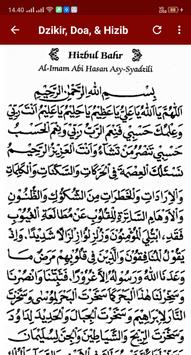 14.40
Dzikir, Doa, & Hizib
Hizbul Bahr
Al-Imam Abi Hasan Asy-Syadzili
بِسْمِ اللهِ الرَّحْمٰنِ الرَّحِيْمِ
اَللّٰهُمَّ يَا اَللهُ يَا عَلِيُّ يَا عَظِيْمُ يَا حَلِيْمُ يَا عَلِيْمُ اَنْتَ رَبِّيْ
وَعِلْمُكَ حَسْبِيْ فَنِعْمَ الرَّبُّ رَبِّيْ وَنِعْمَ الْحَسْبُ
حَسْبِيْ تَنْصُرُ مَنْ تَشَاءُ وَاَنْتَ الْعَزِيْزُ الرَّحِيْمُ
نَسْئَلُكَ الْعِصْمَةَ فِي الْحَرَكَاتِ وَالسَّكَنَاتِ وَالْكَلِمَاتِ
وَالْاِرَادَاتِ وَالْخَطَرَاتِ مِنَ الشُّكُوْكِ وَالظُّنُوْنِ
وَالْاَوْهَامِ السَّاتِرَةِ لِلْقُلُوْبِ عَنْ مُطَالَعَةِ الْغُيُوْبِ
فَقَدِ ابْتُلِيَ الْمُؤْمِنُوْنَ وَزُلْزِلُوْا زِلْزَالًا شَدِيْدًا. وَاِذْ
يَقُوْلُ الْمُنَافِقُوْنَ وَالَّذِيْنَ فِيْ قُلُوْبِهِمْ مَرَضٌ مَا
وَعَدَنَا اللهُ وَرَسُوْلُهُ اِلَّا غُرُوْرًا. فَثَبِّتْنَا وَانْصُرْنَا
وَسَخِّرْ لَنَا هٰذَا الْبَحْرَ كَمَا سَخَّرْتَ الْبَحْرَ لِمُوْسٰى
وَسَخَّرْتَ النَّارَ لِاِبْرَاهِيْمَ وَسَخَّرْتَ الْجِبَالَ وَالْحَدِيْدَ لِدَاوُدَ
وَسَخَّرْتَ الرِّيْحَ وَالشَّيَاطِيْنَ وَالْجِنَّ لِسُلَيْمَانَ